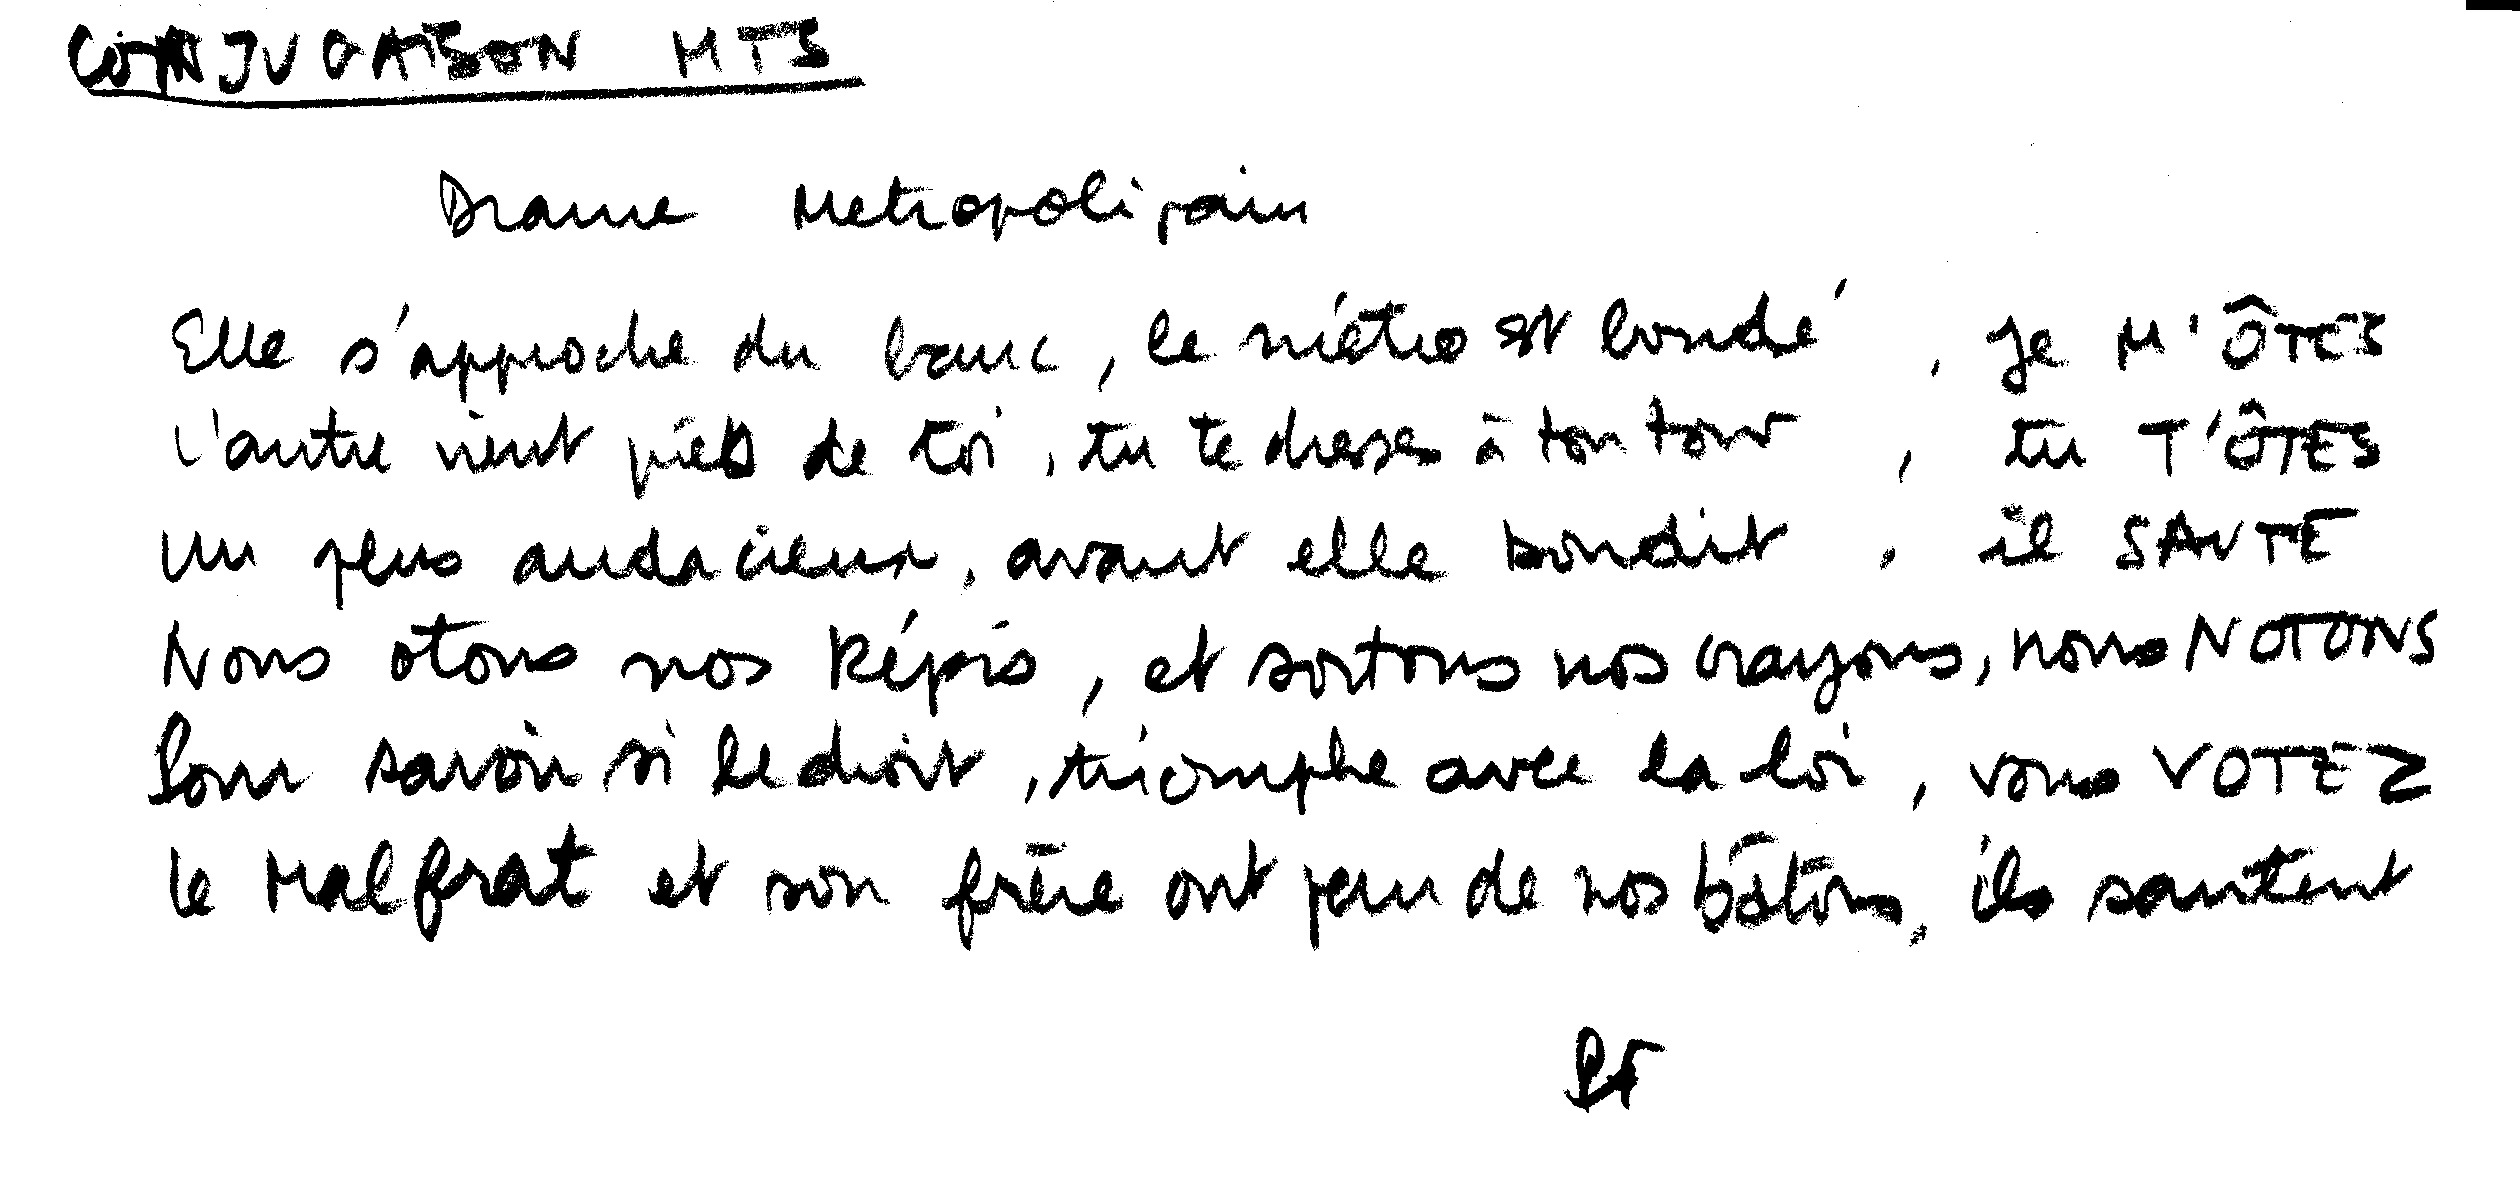 CONJUGAISON MTS
Drame Metropolitain
Elle s'approche du banc, le métro est bondé, je M'ÔTES
L'autre vient près de toi, tu te dresses à ton tour, tu T'ÔTES
Un plus audacieux, avant elle bondit, il SAUTE
Nous otons nos Képis, et sortons nos crayons, nous NOTONS
Pour savoir si le droit, triomphe avec la loi, vous VOTEZ
Le Malfrat et son frère ont peur de nos bâtons, ils sautent